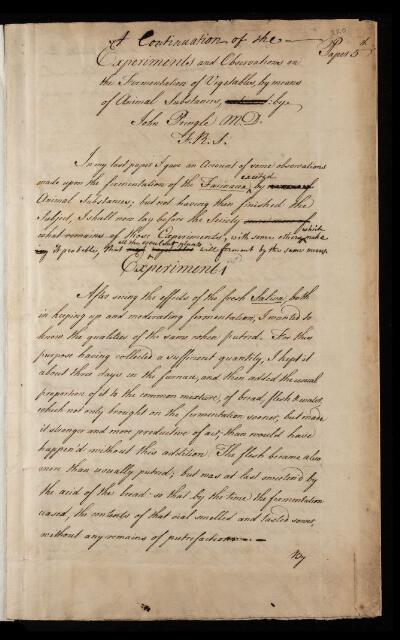 A Continuation of the
Paper 5th
Experiments and Observations on
the Fermentation of Vegetables, by means
of Animal Substances, by
John Pringle M.D.
F.R.S.
In my last paper I gave an Account of some observations
made upon the fermentation of the Farinacea, excited by
Animal Substances; but not having then finished the
Subject, I shall now lay before the Society
what remains of those Experiments, with some others which make
it probable, that all the esculent plants will ferment by the same means.
Experiments
After seeing the effects of the fresh Saliva, both
in keeping up and moderating fermentation, I wanted to
know the qualities of the same when putrid. For this
purpose having collected a sufficient quantity, I kept it
about three days in the furnace, and then added the usual
proportion of it to the common mixture, of bread, flesh & water,
which not only brought on the fermentation sooner, but made
it stronger and more productive of air, than would have
happen'd without this addition. The flesh became also
more than usually putrid; but was at last sweetend by
the acid of the bread: so that by the time the fermentation
ceased, the contents of that vial smelled and tasted sower,
without any remains of putrefaction.
By